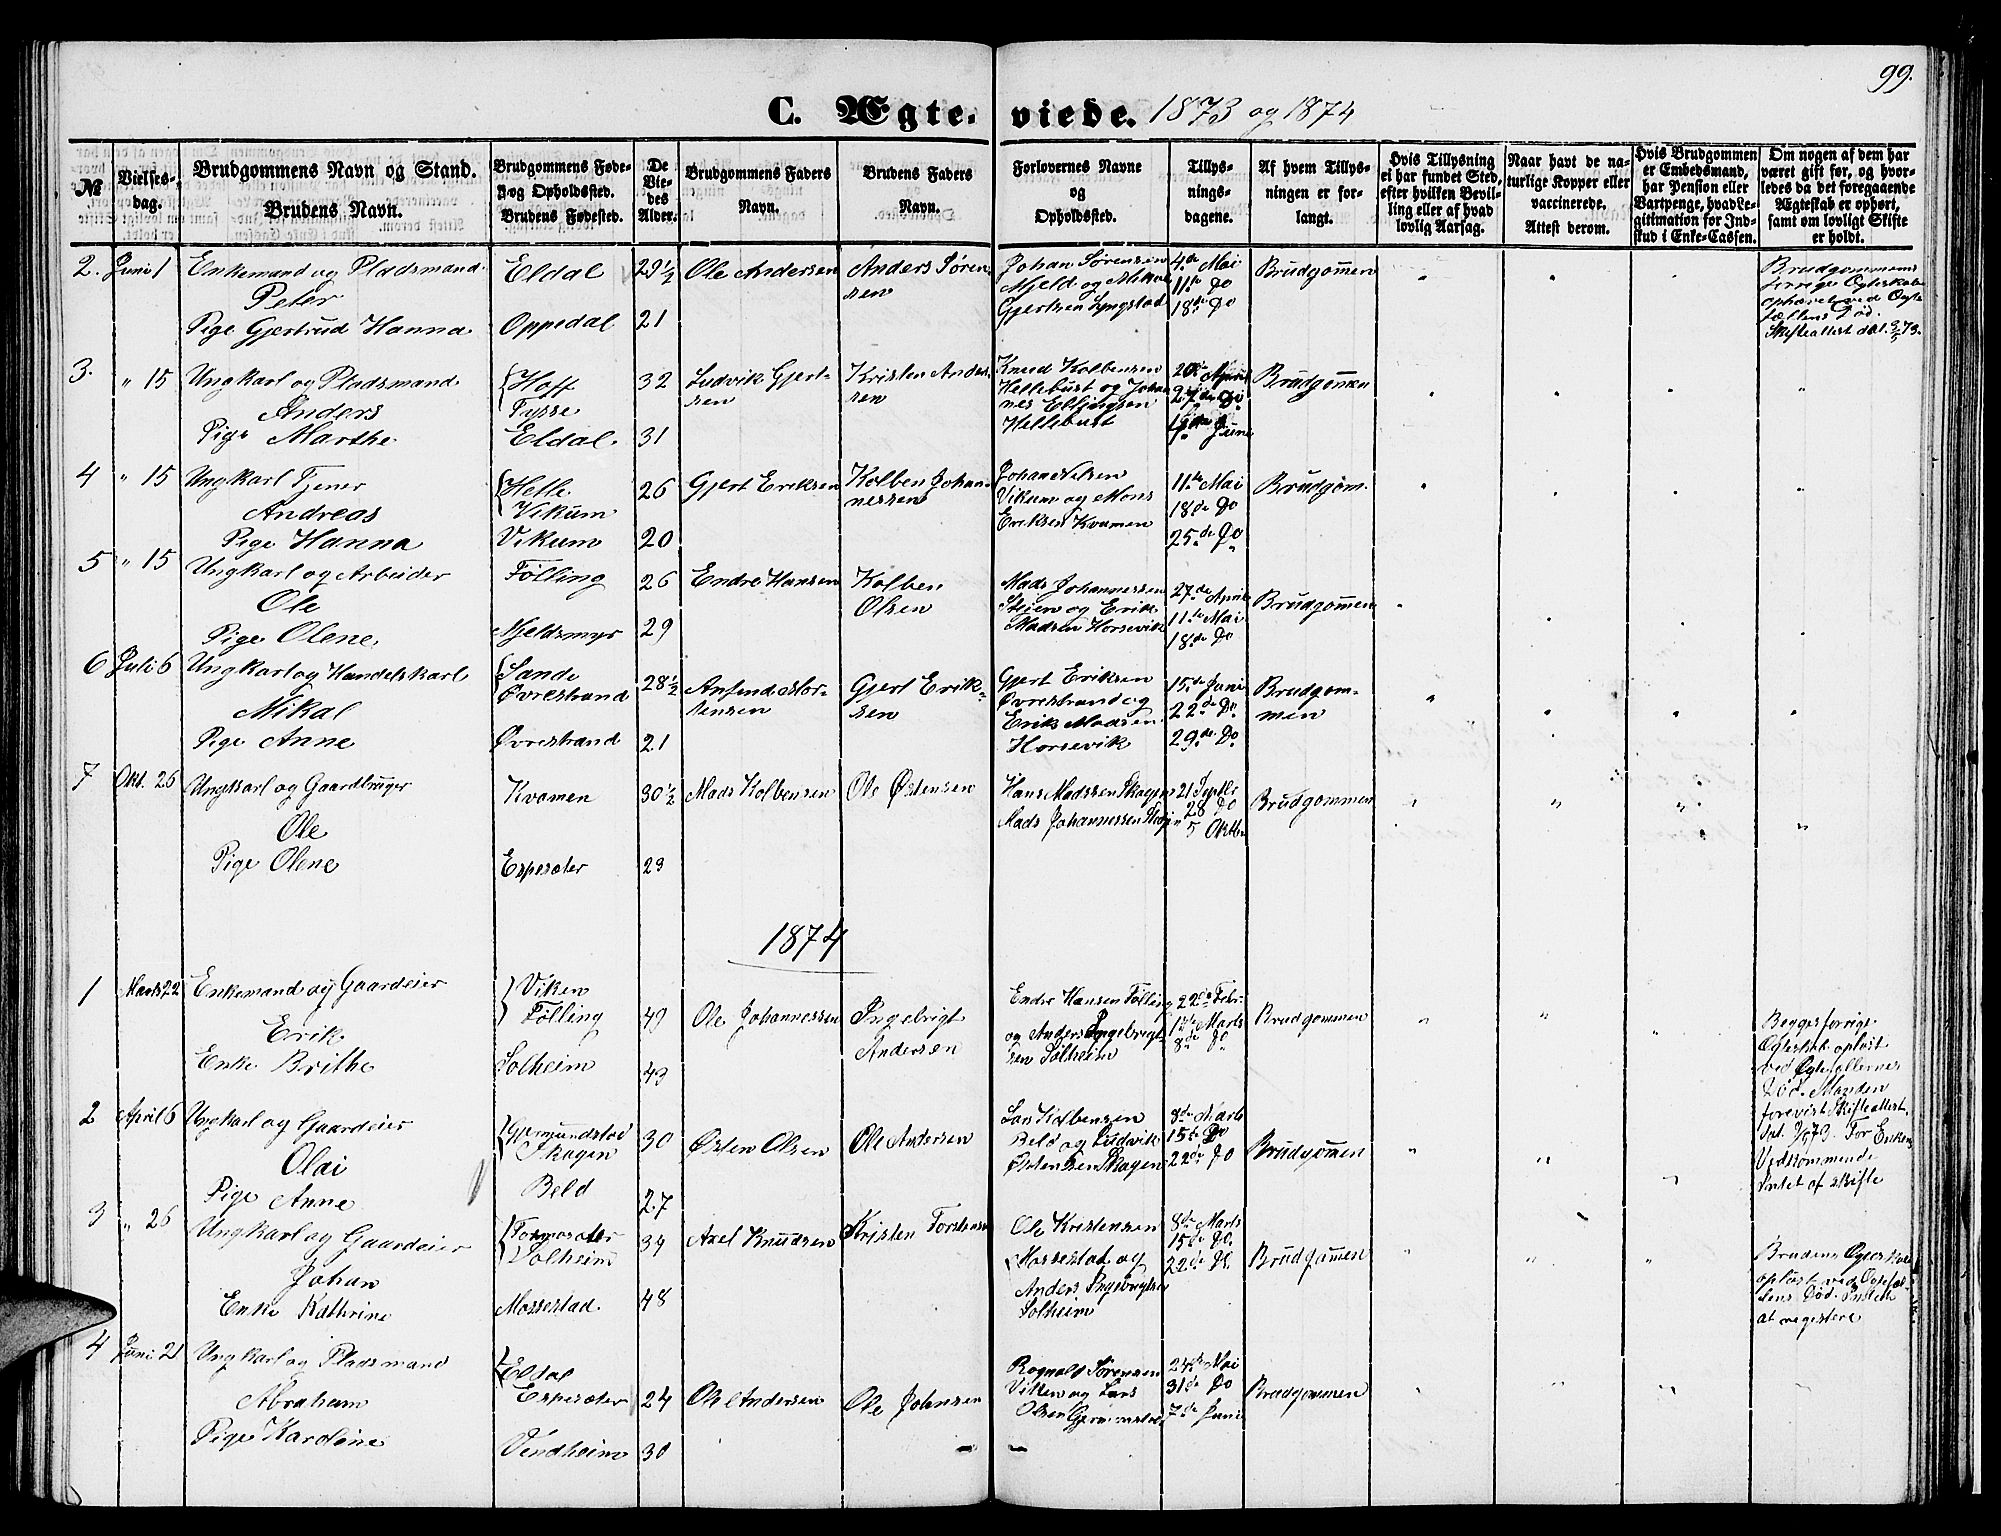 99.
C. Ægte- viede. 1873 og 1874
№
Vielses-
dag.
Brudgommens Navn og Stand.
Brudens Navn.
Brudgommens Føde-
og Opholdssted.
Brudens Fødested.
De
Vie-
des
Alder.
Brudgommens Faders
Navn.
Brudens Faders
Navn.
Forlovernes Navne
og
Opholdssted.
Tillys-
nings-
dagene.
Af hvem Tillys-
ningen er for-
langt.
Hvis Tillysning
ei har fundet Sted,
efter hvilken Bevil-
ling eller af hvad
lovlig Aarsag.
Naar havt de na-
turlige Kopper eller
vaccinerede.
Attest derom.
Hvis Brudgommen
er Embedsmand,
har Pension eller
Vartpenge, hvad Le-
gitimation for Ind-
skud i Enke-Cassen.
Om nogen af dem har
været gift før, og hvor-
ledes da det foregaaende
Ægteskab er ophørt,
samt om lovligt Skifte
er holdt.
2. Juni 1 Enkemand og Pladsmand
Peter
Pige Gjertrud Hanna
Eldal
Oppedal
29½
21
Ole Andersen
Anders Søren-
sen
Johan Sørensen
Mjeld og
Gjertsen Lyngstad
4de Mai
11te Do
18de Do
Brudgommen
Brudgommens
forrige Egteskab
ophævet ved Egte
fællens Død.
Skifteattest dat. 3/5 73.
3. " 15 Ungkarl og Pladsmand
Anders
Pige Marthe
Hoff
Tysse
Eldal
32
31
Ludvik Gjert-
sen
Kristen Ander-
sen
Knud Kolbensen
Hellebust og Johan
nes Ellingsen
Hellebust
20de April
27de Do
1ste Juni
Brudgommen
4 " 15 Ungkarl Tjener
Andreas
Pige Hanna
Helle
Vikum
Vikum
26
20
Gjert Eriksen
Kolben Johan-
nessen
Johan Nilsen
Vikum og Mons
Eriksen Kvamen
11te Mai
18de Do
25de Do
Brudgom.
5 " 15 Ungkarl og Arbeider
Ole
Pige Olene
Følling
Mjeldsmyr
26
29
Endre Hansen
Kolben
Olsen
Mads Johannessen
Steien og Erik
Madsen Horsevik
27de April
11te Mai
18de Do
Brudgommen
6 Juli 6 Ungkarl og Handelskarl
Mikal
Pige Anne
Sande
Øvrestrand
Øvrestrand
28½
21
Anfind Mor-
tensen
Gjert Erik-
sen
Gjert Eriksen
Øvrestrand og
Erik Madsen
Horsevik
15de Juni
22de Do
29de Do
Brudgom-
men
7 Okt. 26 Ungkarl og Gaardbruger
Ole
Pige Olene
Kvamen
Espesæter
30½
23
Mads Kolbensen
Ole Østensen
Hans Madssen Skagen
Mads Johannessen Steien
21 Septbr
28 Do
5 Oktbr
Brudgommen
1874
1 Marts 22 Enkemand og Gaardeier
Erik
Enke Brithe
Viken
Følling
Solheim
49
43
Ole Johannessen
Ingebrigt
Andersen
Endre Hansen Følling
og Anders Ingebrigt-
sen Solheim
22de Febr.
1ste Marts
8de Do
Brudgommen
Begges forrige
Egteskab opløst
ved Egtefællernes
Død. Manden
forevist Skifteattest
For Enken
Vedkommende
Intet at skifte
2 April 6 Ungkarl og Gaardeier
Olai
Pige Anne
Gjermundstad
Skagen
Beld
30
27
Østen Olsen
Ole Andersen
Lars Kolbensen
Beld og Ludvik
Østensen Skagen
8de Marts
15de Do
22de Do
Brudgommen
3 " 26 Ungkarl og Gaardeier
Johan
Enke Kathrine
Solheim
Mossestad
34
48
Axel Knudsen
Kristen Torstensen
Ole Kristensen
Mossestad og
Anders Ingebrigtsen
Solheim
8de Marts
15de Do.
22de Do.
Brudgommen
Brudens Egteskab
opløst ved Egtefæl-
lens Død. Intet
at registere
4 Juni 21 Ungkarl og Pladsmand
Abraham
Pige Karoline
Eldal
Espesæter
Vendheim
24
30
Ole Andersen
Ole Johnsen
Rognald Sørensen
Viken og Lars
Olsen
24de Mai
31de Do
7de Juni
Brudgommen